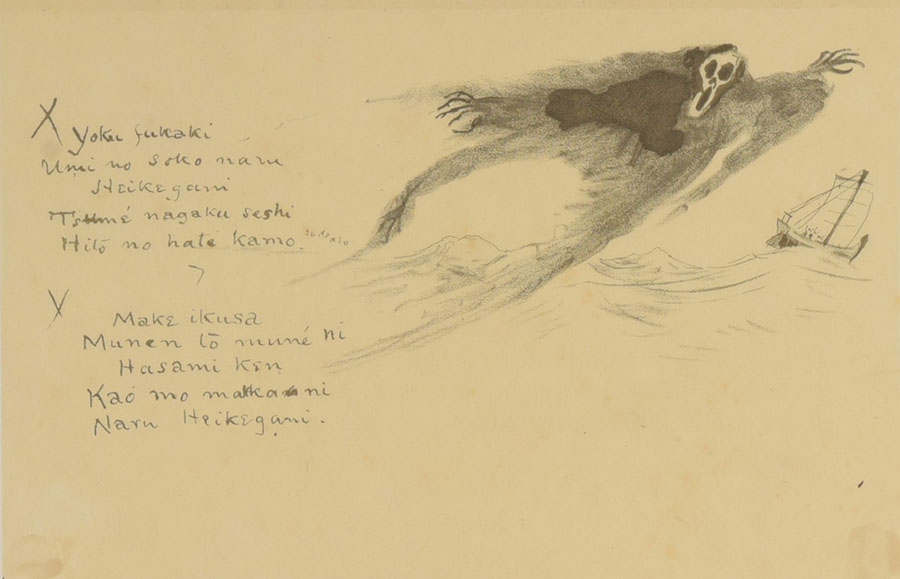 X Yoku fukaki
Umi no soko naru
Heikegani
Tsumé nagaku seshi
Hito no haté kamo.
Y
Make ikusa
Munen tō muné ni
Hasami ken
Kao mo makka ni
Naru Heikegani.